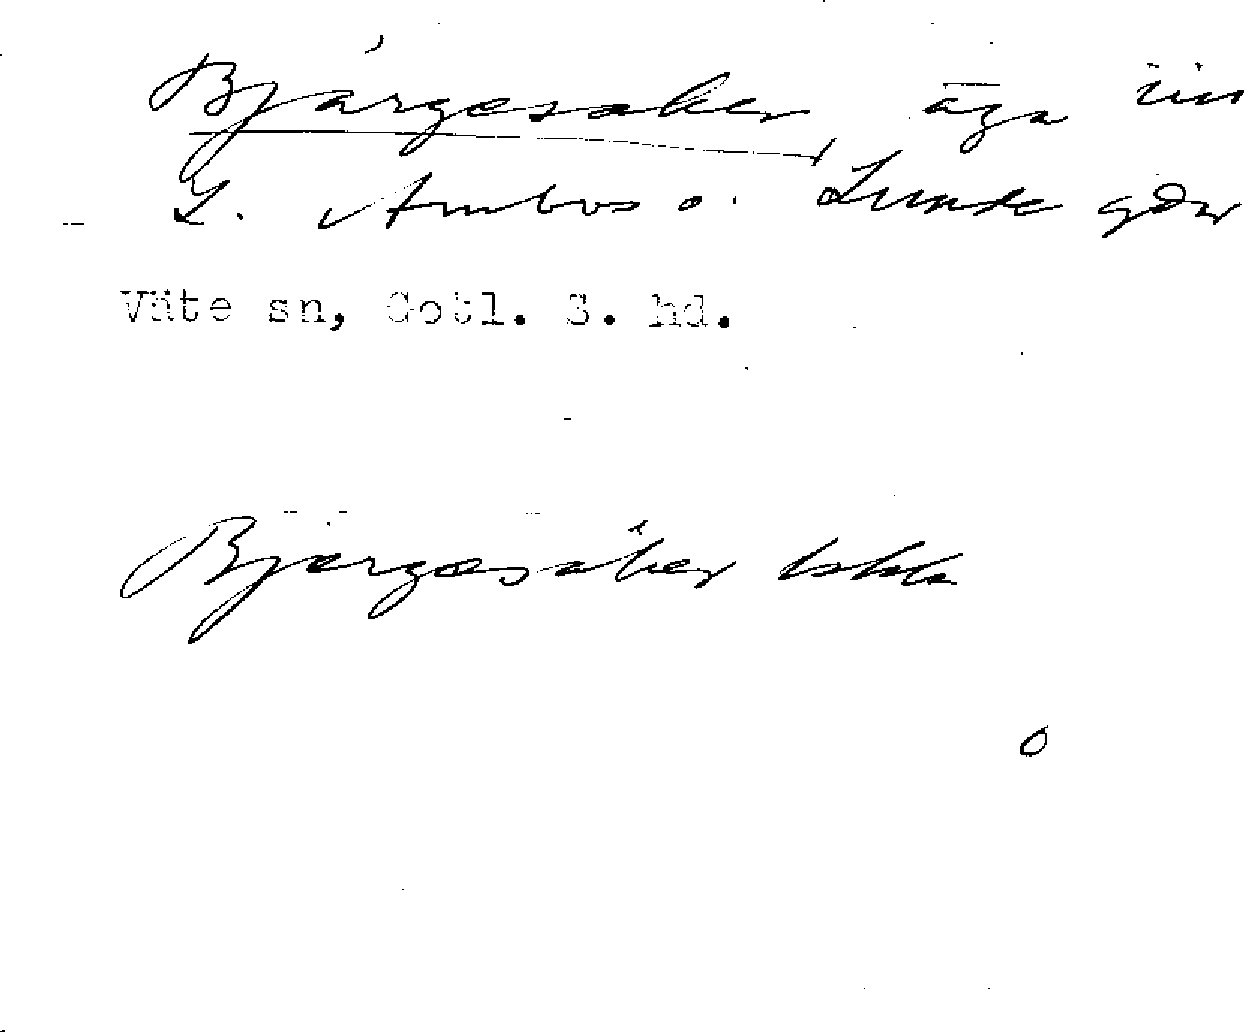 Bjärgesaker, äga
L. Ambos o. Lunde gdr
Väte sn, Gotl. S. hd.
Bjärgesåker
o